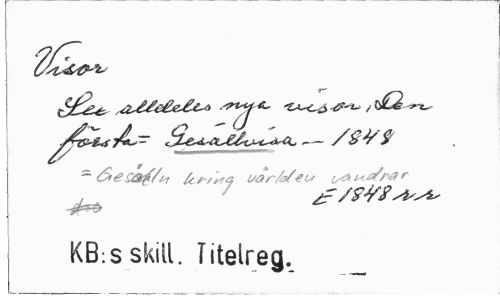 Visor
See alldeles nya visor, Den
första = Gesällvisa – 1848
= Gesälln kring världen vandrar
E 1848 rr
KB:s skill. Titelreg.